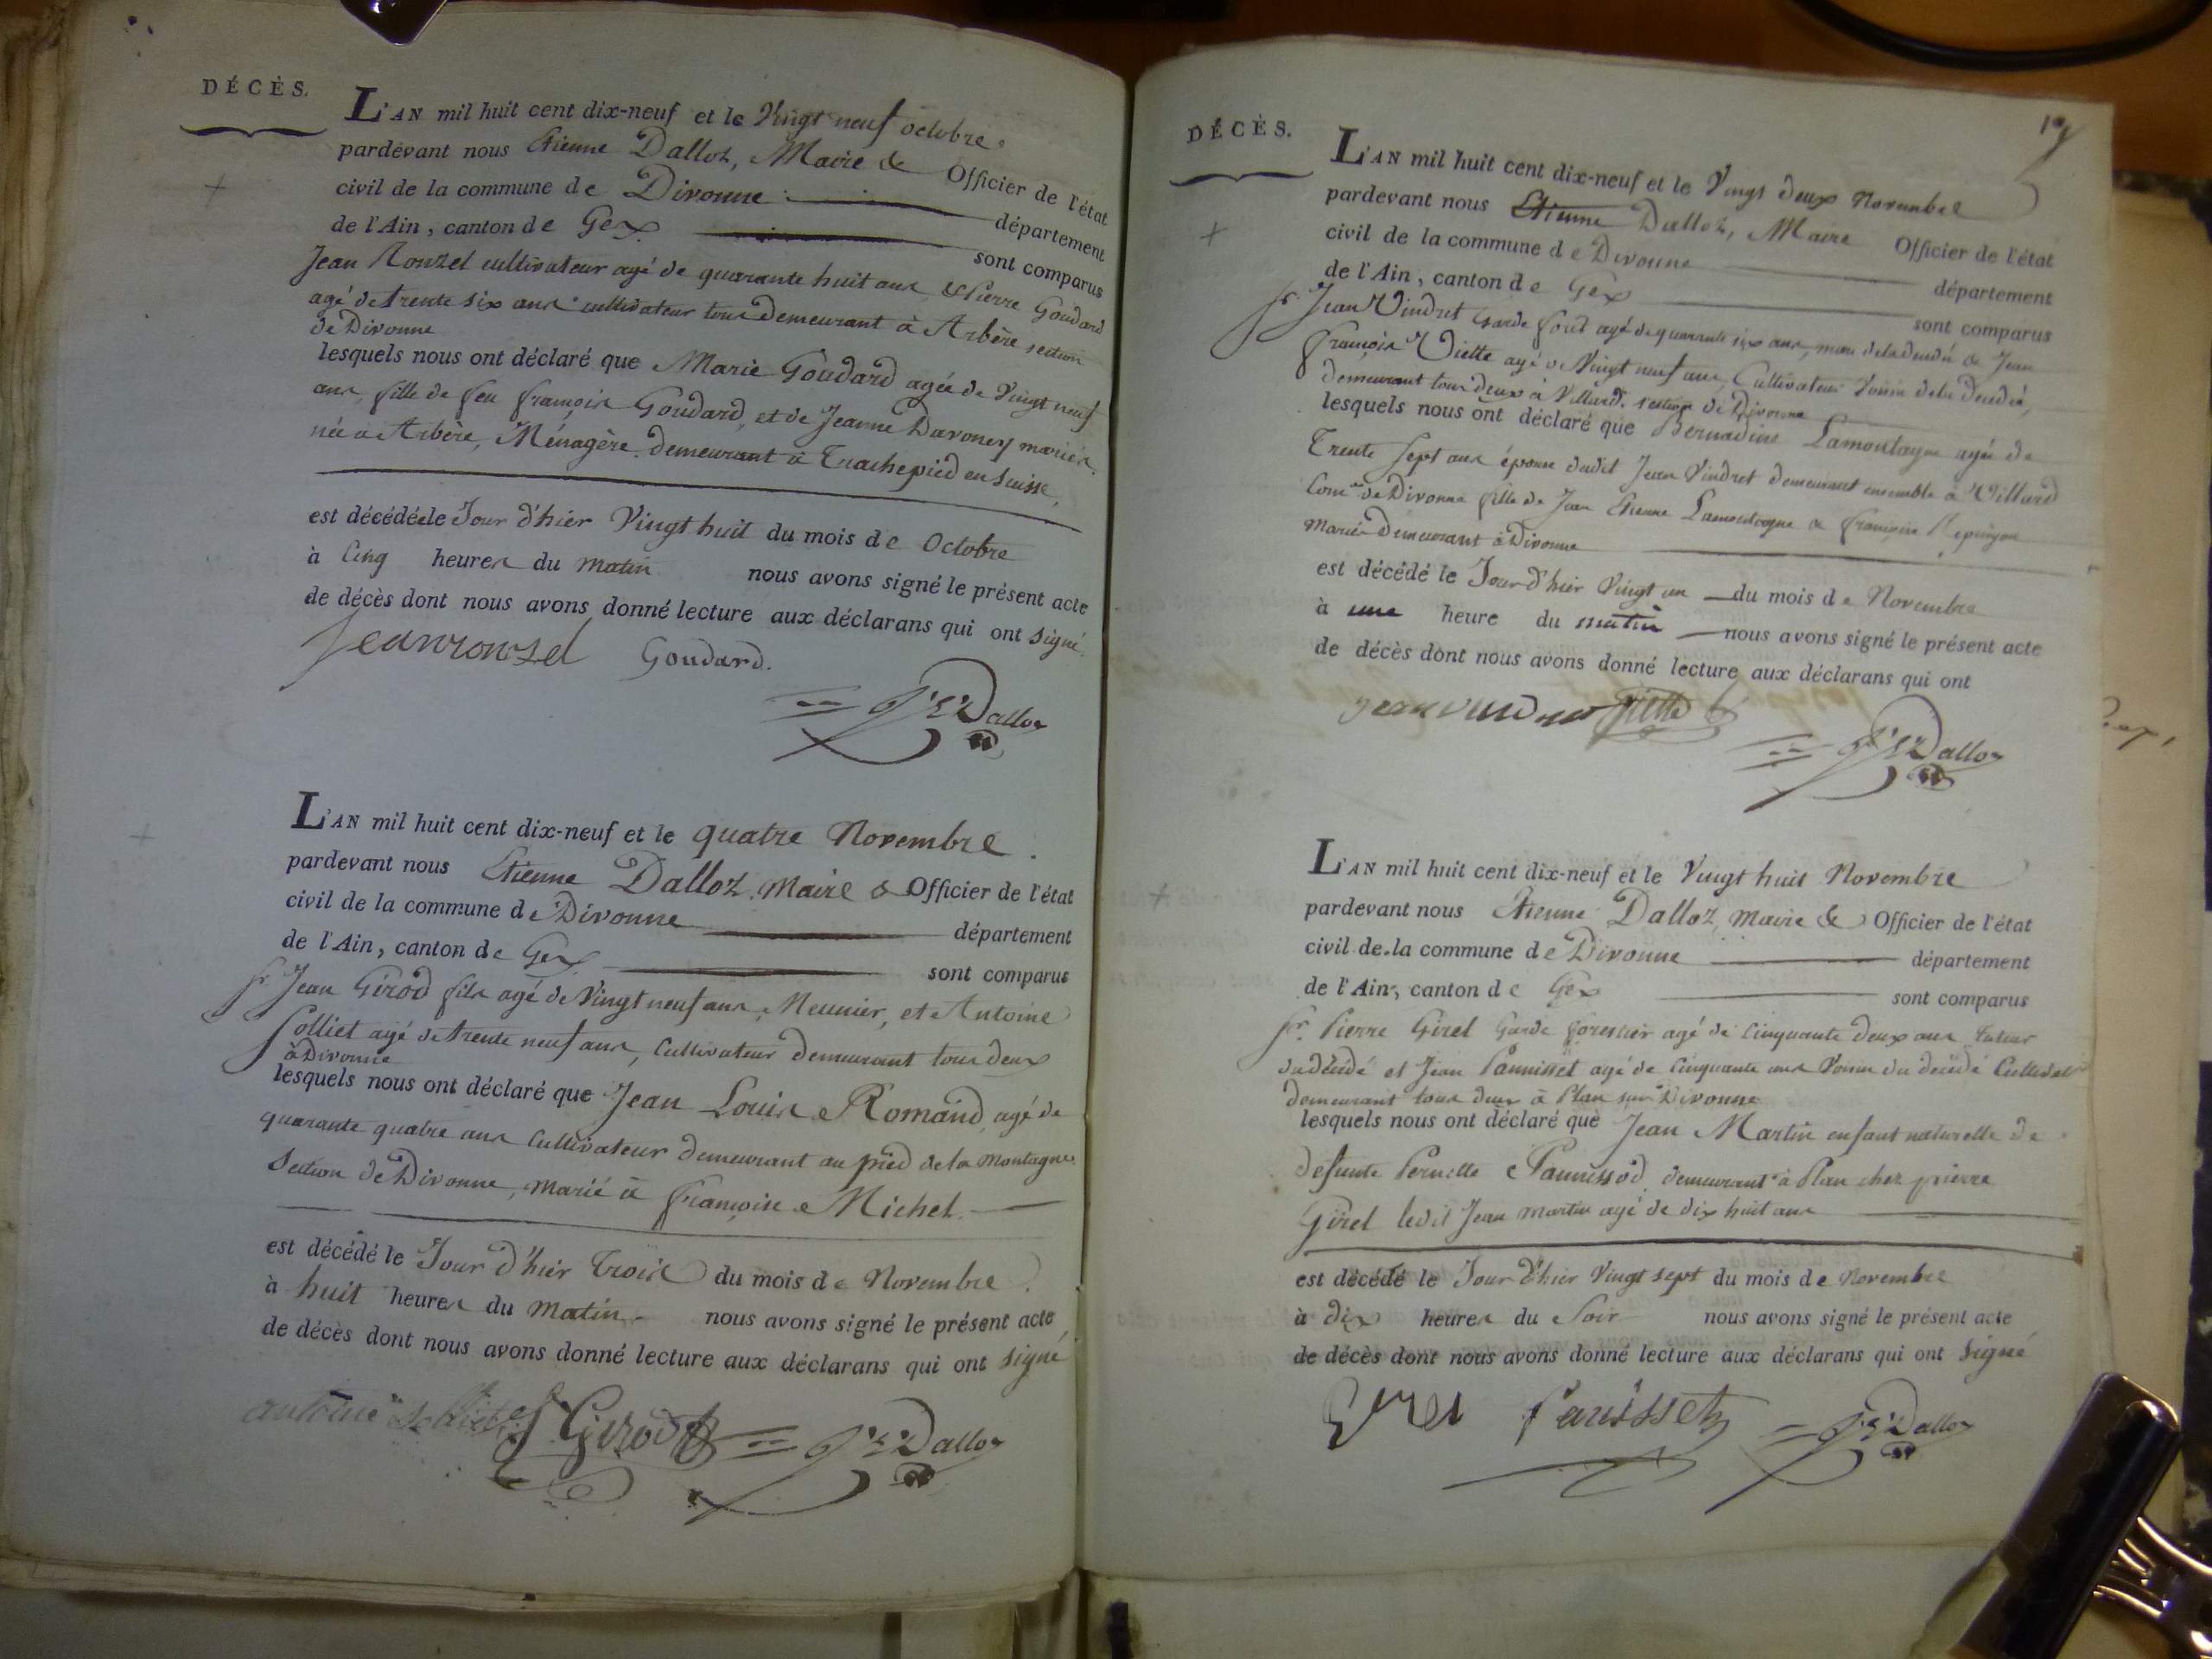 DÉCÈS.
L'AN mil huit cent dix-neuf et le Vingt neuf octobre
pardevant nous Etienne Dalloz, Maire & Officier de l'état
civil de la commune de Divonne département
de l'Ain, canton de Gex sont comparus
Jean Ronzel cultivateur agé de quarante huit ans & Pierre Goudard
agé de trente six ans cultivateur tous demeurant à Arbère section
de Divonne
lesquels nous ont déclaré que Marie Goudard agée de Vingt neuf
ans, fille de feu françois Goudard, et de Jeanne Davoney mariés
née à Arbère, Ménagère demeurant à Trachepied en Suisse
est décédée le Jour d'hier Vingt huit du mois de Octobre
à Cinq heures du matin nous avons signé le présent acte
de décès dont nous avons donné lecture aux déclarans qui ont signé
jeanronzel Goudard.
Dalloz
L'AN mil huit cent dix-neuf et le quatre Novembre
pardevant nous Etienne Dalloz Maire & Officier de l'état
civil de la commune de Divonne département
de l'Ain, canton de Gex sont comparus
sr. Jean Girod fils agé de Vingt neuf ans, Meunier, et Antoine
Solliet agé de trente neuf ans, Cultivateur demeurant tous deux
à Divonne
lesquels nous ont déclaré que Jean Louis Romand, agé de
quarante quatre ans Cultivateur demeurant au pied de la Montagne
Section de Divonne, marié à françoise Michel.
est décédé le Jour d'hier trois du mois de Novembre
à huit heures du Matin nous avons signé le présent acte
de décès dont nous avons donné lecture aux déclarans qui ont signé
antoine solliet Girod Dalloz
DÉCÈS.
L'AN mil huit cent dix-neuf et le Vingt deux Novembre
pardevant nous Etienne Dalloz, Maire Officier de l'état
civil de la commune de Divonne département
de l'Ain, canton de Gex sont comparus
sr. Jean Vindret Garde forêt agé de quarante six ans, mari de la décédée & Jean
françois Viette agé de Vingt neuf ans, Cultivateur Voisin de la Décédée,
demeurant tous deux à Villard, section de Divonne
lesquels nous ont déclaré que Bernadine Lamontagne agée de
Trente Sept ans épouse dudit Jean Vindret demeurant ensemble à Villard
Come de Divonne fille de Jean Etienne Lamontagne & françoise
Mariés demeurant à Divonne
est décédé le Jour d'hier Vingt un du mois de Novembre
à une heure du matin nous avons signé le présent acte
de décès dont nous avons donné lecture aux déclarans qui ont
Viette
Dalloz
L'AN mil huit cent dix-neuf et le Vingt huit Novembre
pardevant nous Etienne Dalloz, Maire & Officier de l'état
civil de la commune de Divonne département
de l'Ain, canton de Gex sont comparus
sr. Pierre Girel Garde forestier agé de Cinquante deux ans tuteur
du décédé et Jean Pannisset agé de Cinquante ans Voisin du décédé
demeurant tous deux à Plan sur Divonne
lesquels nous ont déclaré que Jean Martin enfant naturelle de
defunte Pernette Pannissod demeurant à Plan chez pierre
Girel ledit Jean martin agé de dix huit ans
est décédé le Jour d'hier Vingt sept du mois de Novembre
à dix heures du Soir nous avons signé le présent acte
de décès dont nous avons donné lecture aux déclarans qui ont signé
Girel Panissset Dalloz